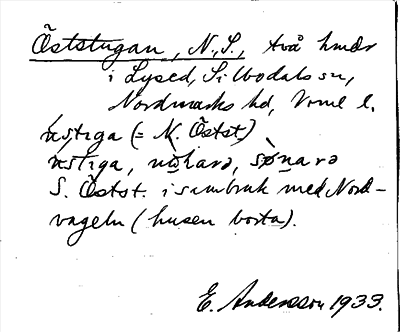 Öststugan, N., S., två hmdr
i Lysed, Silbodals sn,
Nordmarks hd, Vrml l.
ùstiga (= N. Östst.)
ùstiga, nò̱hara, sø̀nara
S. Östst. i sambruk med Nord-
vageln (husen borta).
E. Andersson 1933.